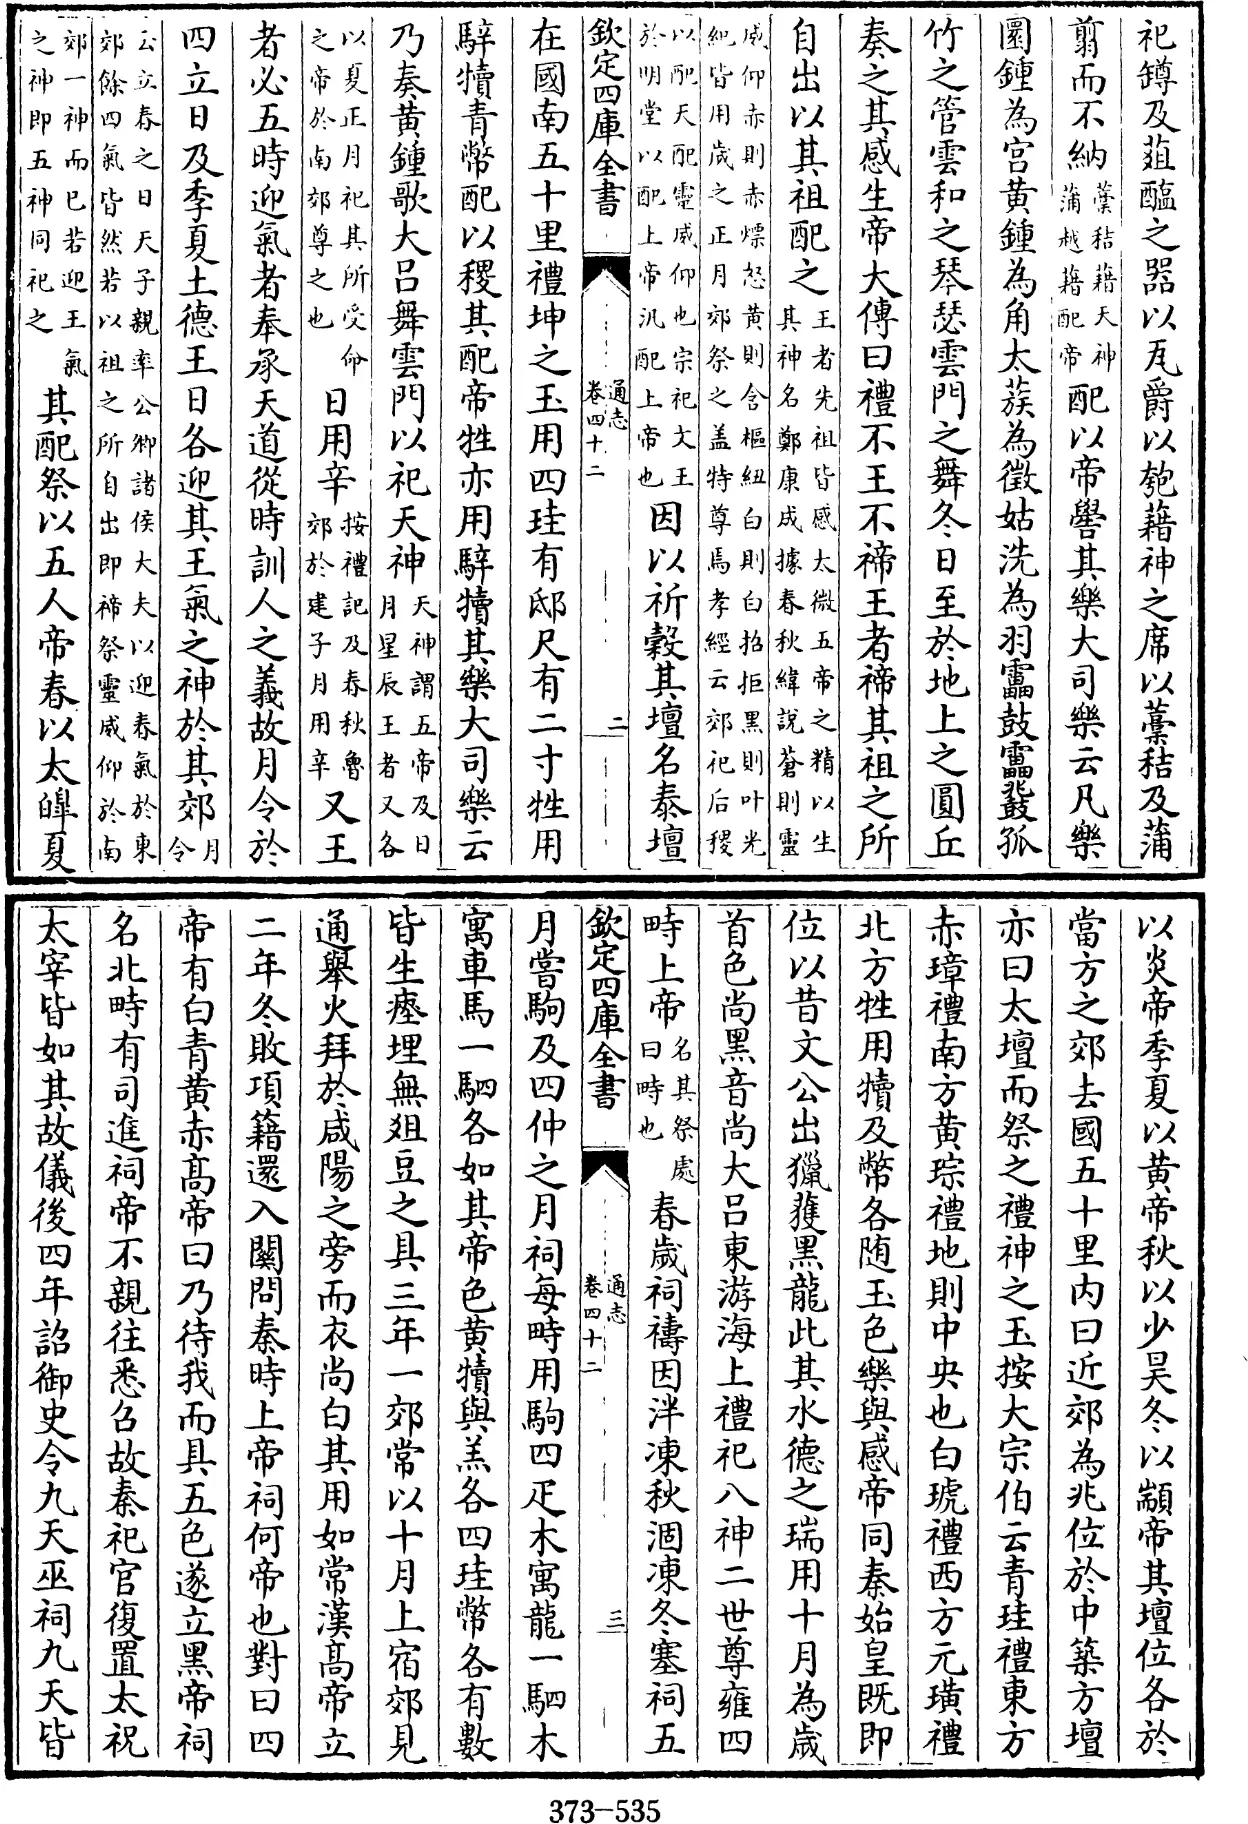 祀罇及葅醢之器以瓦爵以匏藉神之席以藁秸及蒲
翦而不納藁秸藉天神蒲越藉配帝配以帝嚳其樂大司樂云凡樂
圜鍾為宫黄鍾為角太蔟為徵姑洗為羽靁鼓靁鼗孤
竹之管雲和之琴瑟雲門之舞冬日至於地上之圓丘
奏之其感生帝大傳曰禮不王不禘王者禘其祖之所
自出以其祖配之王者先祖皆感太微五帝之精以生其神名鄭康成據春秋緯說蒼則靈
威仰赤則赤熛怒黄則含樞紐白則白招拒黑則叶光紀皆用歲之正月郊祭之盖特尊焉孝經云郊祀后稷
以配天配靈威仰也宗祀文王於明堂以配上帝汎配上帝也因以祈糓其壇名泰壇
欽定四庫全書 通志 卷四十二 二
在國南五十里禮坤之玉用四珪有邸尺有二寸牲用
騂犢青幣配以稷其配帝牲亦用騂犢其樂大司樂云
乃奏黄鍾歌大吕舞雲門以祀天神天神謂五帝及日月星辰王者又各
以夏正月祀其所受命之帝於南郊尊之也日用辛按禮記及春秋魯郊於建子月用辛又王
者必五時迎氣者奉承天道從時訓人之義故月令於
四立日及季夏土德王日各迎其王氣之神於其郊月令
云立春之日天子親率公卿諸侯大夫以迎春氣於東郊餘四氣皆然若以祖之所自出即禘祭靈威仰於南
郊一神而已若迎王氣之神即五神同祀之其配祭以五人帝春以太皥夏
以炎帝季夏以黄帝秋以少昊冬以顓帝其壇位各於
當方之郊去國五十里内曰近郊為兆位於中築方壇
亦曰太壇而祭之禮神之玉按大宗伯云青珪禮東方
赤璋禮南方黄琮禮地則中央也白琥禮西方元璜禮
北方牲用犢及幣各随玉色樂與感帝同秦始皇既即
位以昔文公出獵獲黑龍此其水德之瑞用十月為歲
首色尚黑音尚大吕東游海上禮祀八神二世尊雍四
畤上帝名其祭處曰畤也春歲祠禱因泮凍秋涸凍冬塞祠五
欽定四庫全書 通志 卷四十二 三
月嘗駒及四仲之月祠每畤用駒四疋木寓龍一駟木
寓車馬一駟各如其帝色黄犢與羔各四珪幣各有數
皆生瘞埋無爼豆之具三年一郊常以十月上宿郊見
通舉火拜於咸陽之旁而衣尚白其用如常漢髙帝立
二年冬敗項籍還入關問秦時上帝祠何帝也對曰四
帝有白青黄赤髙帝曰乃待我而具五色遂立黑帝祠
名北畤有司進祠帝不親往悉召故秦祀官復置太祝
太宰皆如其故儀後四年詔御史令九天巫祠九天皆
373-535